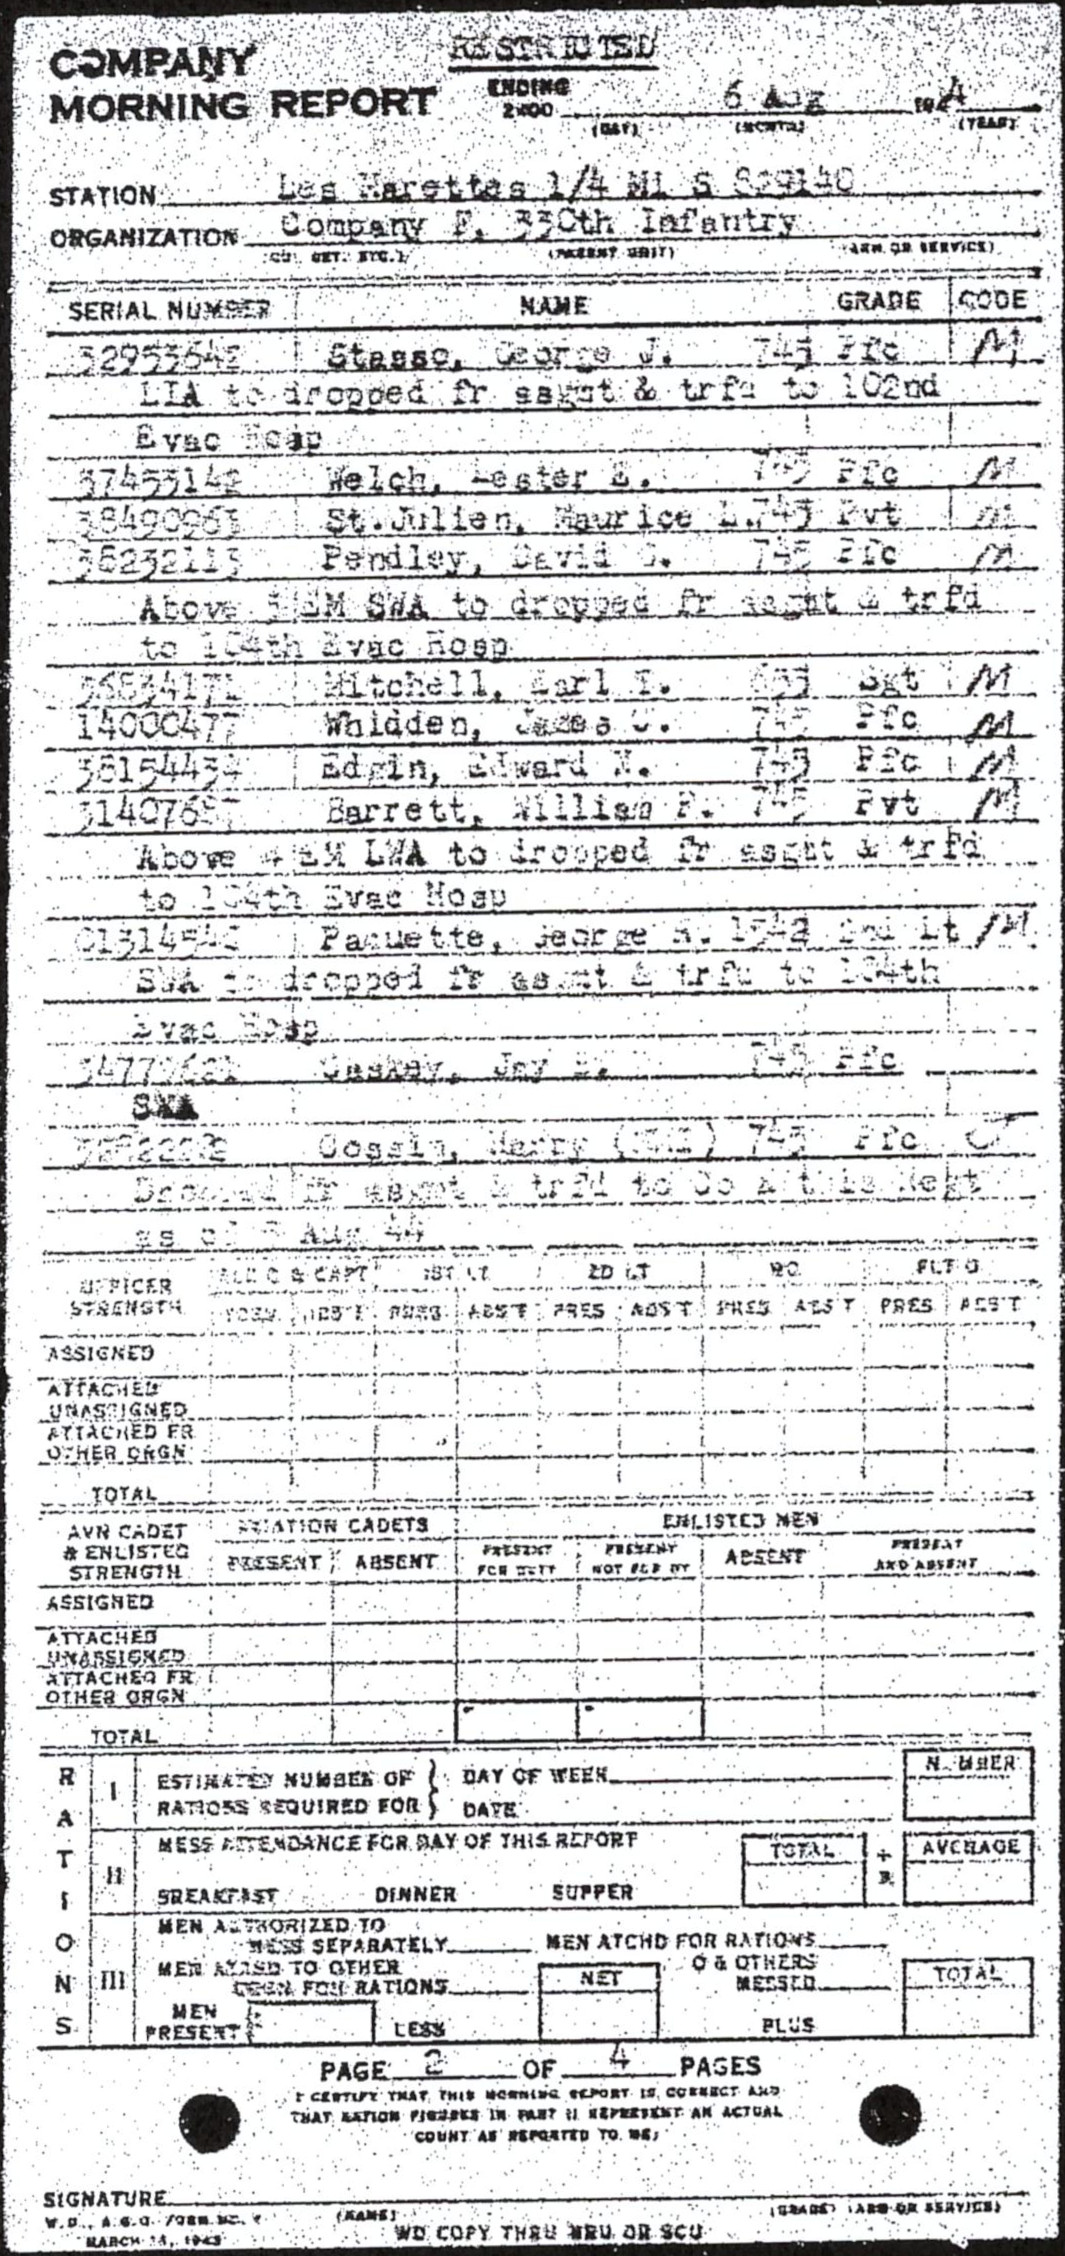 RESTRICTED
COMPANY
MORNING REPORT
ENDING
2400
6 Aug
194
(DAY) (MONTH) (YEAR)
STATION Les Marettes 1/4 Mi S
ORGANIZATION Company F, 330th Infantry
(PARENT UNIT) (ARM OR SERVICE)
SERIAL NUMBER NAME GRADE CODE
Stasso, George J. 745 Pfc M
LIA to dropped fr asgmt & trfd to 102nd
Evac Hosp
37453142 Welch, Lester E. 745 Pfc M
38490963 St.Julien, Maurice L. 745 Pvt M
Pendley, David 745 Pfc M
Above 3 EM SWA to dropped fr asgmt & trfd
to 104th Evac Hosp
Mitchell, Earl Sgt M
14000477 Whidden, James 745 Pfc M
Edgin, Edward N. 745 Pfc M
Barrett, William F. 745 Pvt M
Above 4 EM LWA to dropped fr asgmt & trfd
to 104th Evac Hosp
Paquette, George 1542 2nd Lt M
SWA to dropped fr asgmt & trfd to 104th
Evac Hosp
Caskey, Jay 745 Pfc
SWA
Gossin, Harry (NMI) 745 Pfc
Dropped fr asgmt & trfd to Co A this Regt
as of Aug 44
OFFICER STRENGTH & CAPT 1ST LT 2D LT WO FLT O
PRES ABS'T PRES ABS'T PRES ABS'T PRES ABS'T
ASSIGNED
ATTACHED
UNASSIGNED
ATTACHED FR
OTHER ORGN
TOTAL
AVN CADET
& ENLISTED
STRENGTH
AVIATION CADETS ENLISTED MEN
PRESENT ABSENT PRESENT FOR DUTY PRESENT NOT FOR DY ABSENT PRESENT AND ABSENT
ASSIGNED
ATTACHED
UNASSIGNED
ATTACHED FR
OTHER ORGN
TOTAL
RATIONS
I ESTIMATED NUMBER OF DAY OF WEEK NUMBER
RATIONS REQUIRED FOR DATE
II MESS ATTENDANCE FOR DAY OF THIS REPORT TOTAL ÷ 3 AVERAGE
BREAKFAST DINNER SUPPER
III MEN AUTHORIZED TO
MESS SEPARATELY MEN ATCHD FOR RATIONS
MEN ATCHD TO OTHER O & OTHERS
ORGN FOR RATIONS NET MESSED TOTAL
MEN
PRESENT LESS PLUS
PAGE 2 OF 4 PAGES
I CERTIFY THAT THIS MORNING REPORT IS CORRECT AND
THAT RATION FIGURES IN PART II REPRESENT AN ACTUAL
COUNT AS REPORTED TO ME;
SIGNATURE
(NAME) (GRADE) (ARM OR SERVICE)
W.D., A.G.O. FORM NO. 1
MARCH 1943
WD COPY THRU MRU OR SCU